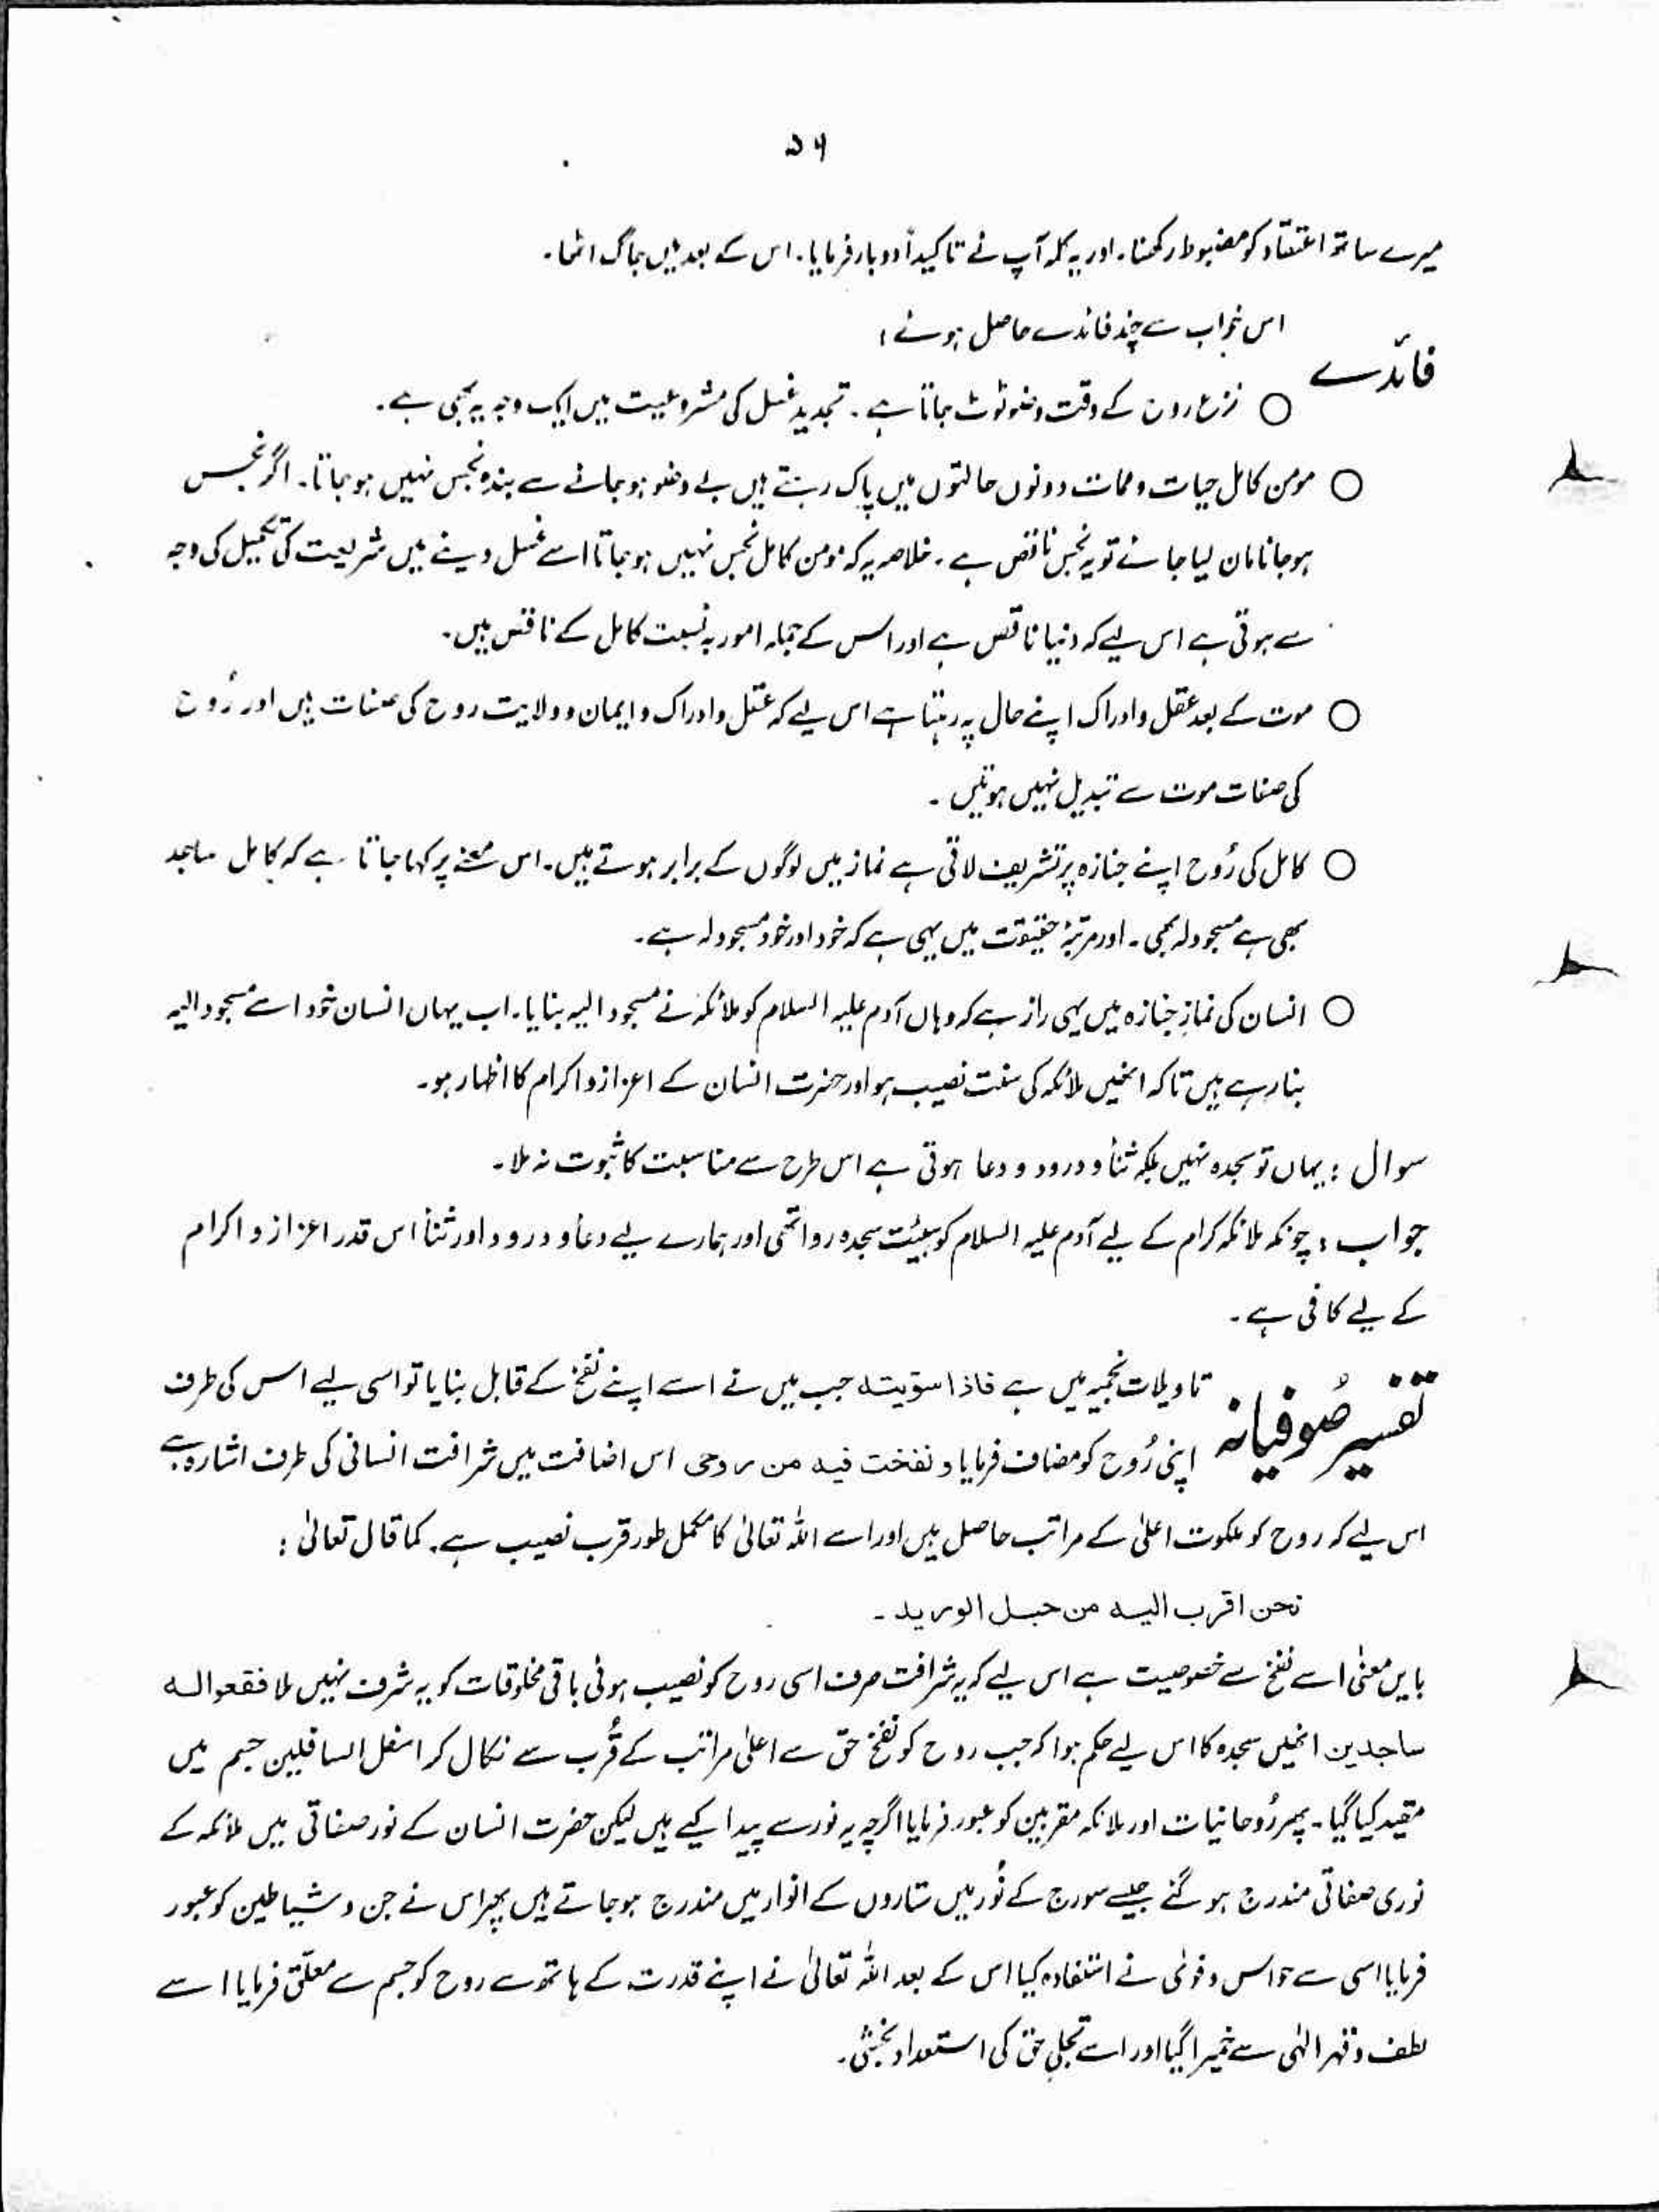 ۵۶
میرے ساتھ اعتقاد کو مضبوط رکھنا۔ اور یہ کلمہ آپ نے تاکیداً دوبار فرمایا۔ اس کے بعد میں جاگ اٹھا۔
فائدے
اس خواب سے چند فائدے حاصل ہوئے:
○ نزع روح کے وقت وضو ٹوٹ جاتا ہے۔ تجدیدِ غسل کی مشروعیت میں ایک وجہ یہ بھی ہے۔
○ مومن کامل حیات و ممات دونوں حالتوں میں پاک رہتے ہیں بے وضو ہو جانے سے بندہ نجس نہیں ہو جاتا۔ اگر نجس
ہو جانا مان لیا جائے تو یہ نجس ناقص ہے۔ خلاصہ یہ کہ مومن کامل نجس نہیں ہو جاتا اسے غسل دینے میں شریعت کی تکمیل کی وجہ
سے ہوتی ہے اس لیے کہ دنیا ناقص ہے اور اس کے جملہ امور بہ نسبت کامل کے ناقص ہیں۔
○ موت کے بعد عقل و ادراک اپنے حال پہ رہتا ہے اس لیے کہ عقل و ادراک و ایمان و ولایت روح کی صفات ہیں اور رُوح
کی صفات موت سے تبدیل نہیں ہوتیں۔
○ کامل کی رُوح اپنے جنازہ پر تشریف لاتی ہے نماز میں لوگوں کے برابر ہوتے ہیں۔ اس معنے پر کہا جاتا ہے کہ کامل ساجد
بھی ہے مسجود لہ بھی۔ اور مرتبۂ حقیقت میں یہی ہے کہ خود اور خود مسجود لہ ہے۔
○ انسان کی نمازِ جنازہ میں یہی راز ہے کہ وہاں آدم علیہ السلام کو ملائکہ نے مسجود الیہ بنایا۔ اب یہاں انسان خود اسے مسجود الیہ
بنا رہے ہیں تاکہ انھیں ملائکہ کی سنت نصیب ہو اور حضرت انسان کے اعزاز و اکرام کا اظہار ہو۔
سوال: یہاں تو سجدہ نہیں بلکہ ثنأ و درود و دعا ہوتی ہے اس طرح سے مناسبت کا ثبوت نہ ملا۔
جواب: چونکہ ملائکہ کرام کے لیے آدم علیہ السلام کو ہیئت سجدہ روا تھی اور ہمارے لیے دعأ و درود اور ثنأ اس قدر اعزاز و اکرام
کے لیے کافی ہے۔
تفسیر صُوفیانہ
تاویلات نجمیہ میں ہے فاذا سوّیتہ جب میں نے اسے اپنے نفخ کے قابل بنایا تو اسی لیے اس کی طرف
اپنی رُوح کو مضاف فرمایا و نفخت فیہ من روحی اس اضافت میں شرافت انسانی کی طرف اشارہ ہے
اس لیے کہ روح کو ملکوت اعلیٰ کے مراتب حاصل ہیں اور اسے اللہ تعالیٰ کا مکمل طور قرب نصیب ہے۔ کما قال تعالیٰ:
نحن اقرب الیہ من حبل الورید۔
بایں معنیٰ اسے نفخ سے خصوصیت ہے اس لیے کہ یہ شرافت صرف اسی روح کو نصیب ہوئی باقی مخلوقات کو یہ شرف نہیں ملا فقعوا لہ
ساجدین انھیں سجدہ کا اس لیے حکم ہوا کہ جب روح کو نفخ حق سے اعلیٰ مراتب کے قُرب سے نکال کر اسفل السافلین جسم میں
مقید کیا گیا۔ پھر رُوحانیات اور ملائکہ مقربین کو عبور فرمایا اگرچہ یہ نور سے پیدا کیے ہیں لیکن حضرت انسان کے نور صفاتی میں ملائکہ کے
نوری صفاتی مندرج ہو گئے جیسے سورج کے نُور میں ستاروں کے انوار میں مندرج ہو جاتے ہیں پھر اس نے جن و شیاطین کو عبور
فرمایا اسی سے حواس و قویٰ نے استفادہ کیا اس کے بعد اللہ تعالیٰ نے اپنے قدرت کے ہاتھ سے روح کو جسم سے معلّق فرمایا اسے
لطف و قہر الٰہی سے خمیرا گیا اور اسے تجلی حق کی استعداد بخشی۔